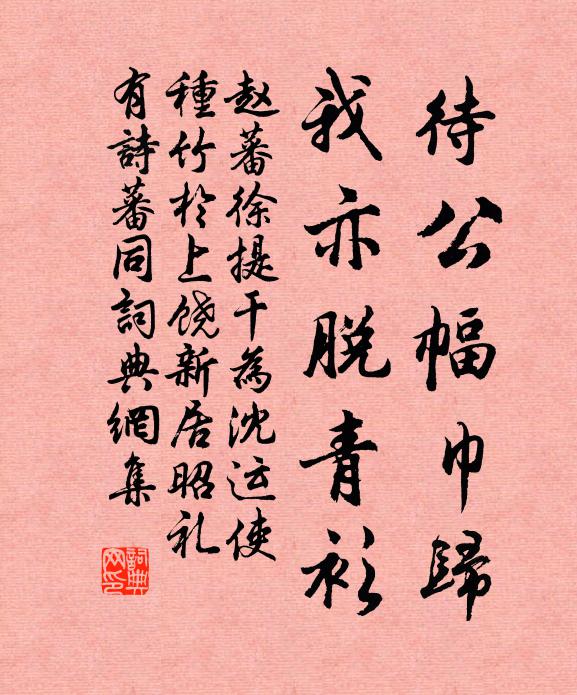 待公幅巾歸
我亦脱青衫
赵蕃徐提干為沈运使
種竹於上饶新居昭礼
有詩蕃同詞典網集
詞典網印